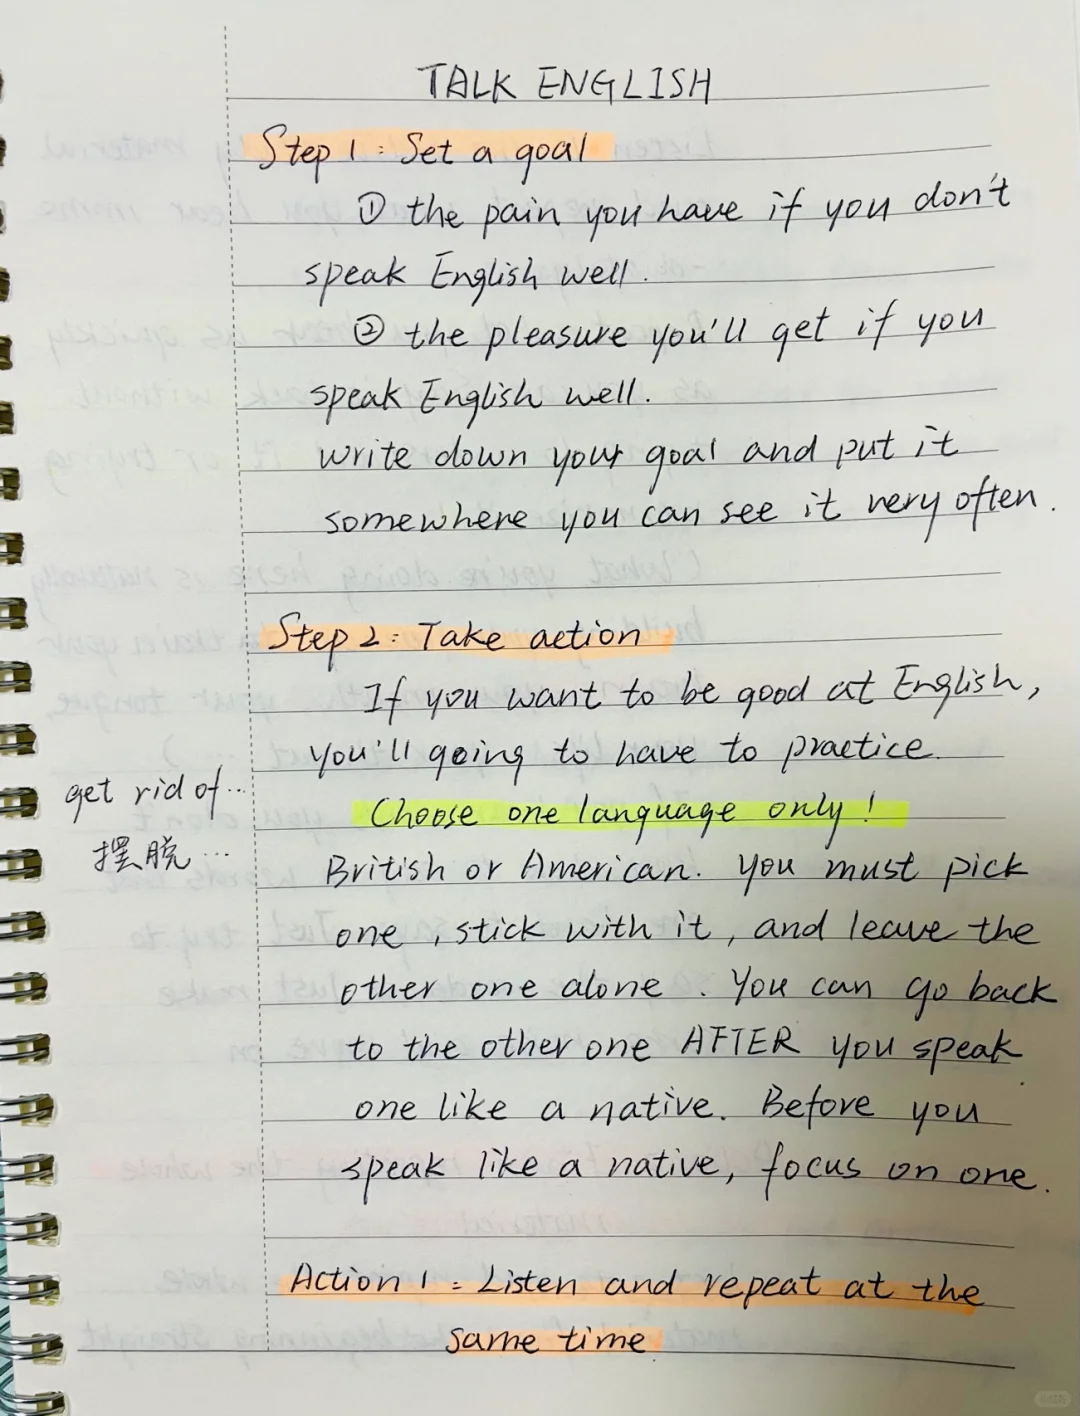 TALK ENGLISH
Step 1: Set a goal
① the pain you have if you don't
speak English well.
② the pleasure you'll get if you
speak English well.
write down your goal and put it
somewhere you can see it very often.
Step 2: Take action
If you want to be good at English,
you'll going to have to practice.
get rid of...
摆脱...
Choose one language only!
British or American. You must pick
one, stick with it, and leave the
other one alone. You can go back
to the other one AFTER you speak
one like a native. Before you
speak like a native, focus on one.
Action 1: Listen and repeat at the
same time